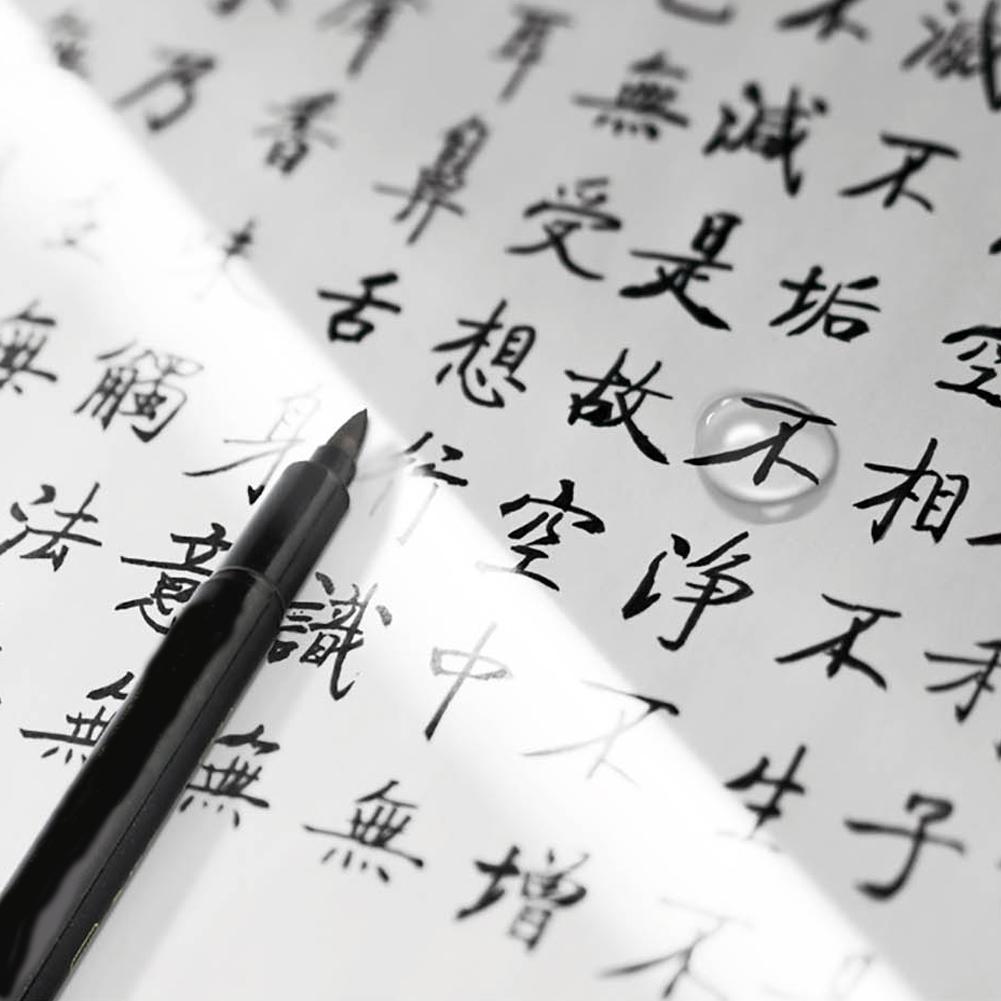 利子
空相不生不
滅不垢不淨不增
不減是故空中無
無受想行識無
耳鼻舌身意無
香味觸法
乃至無